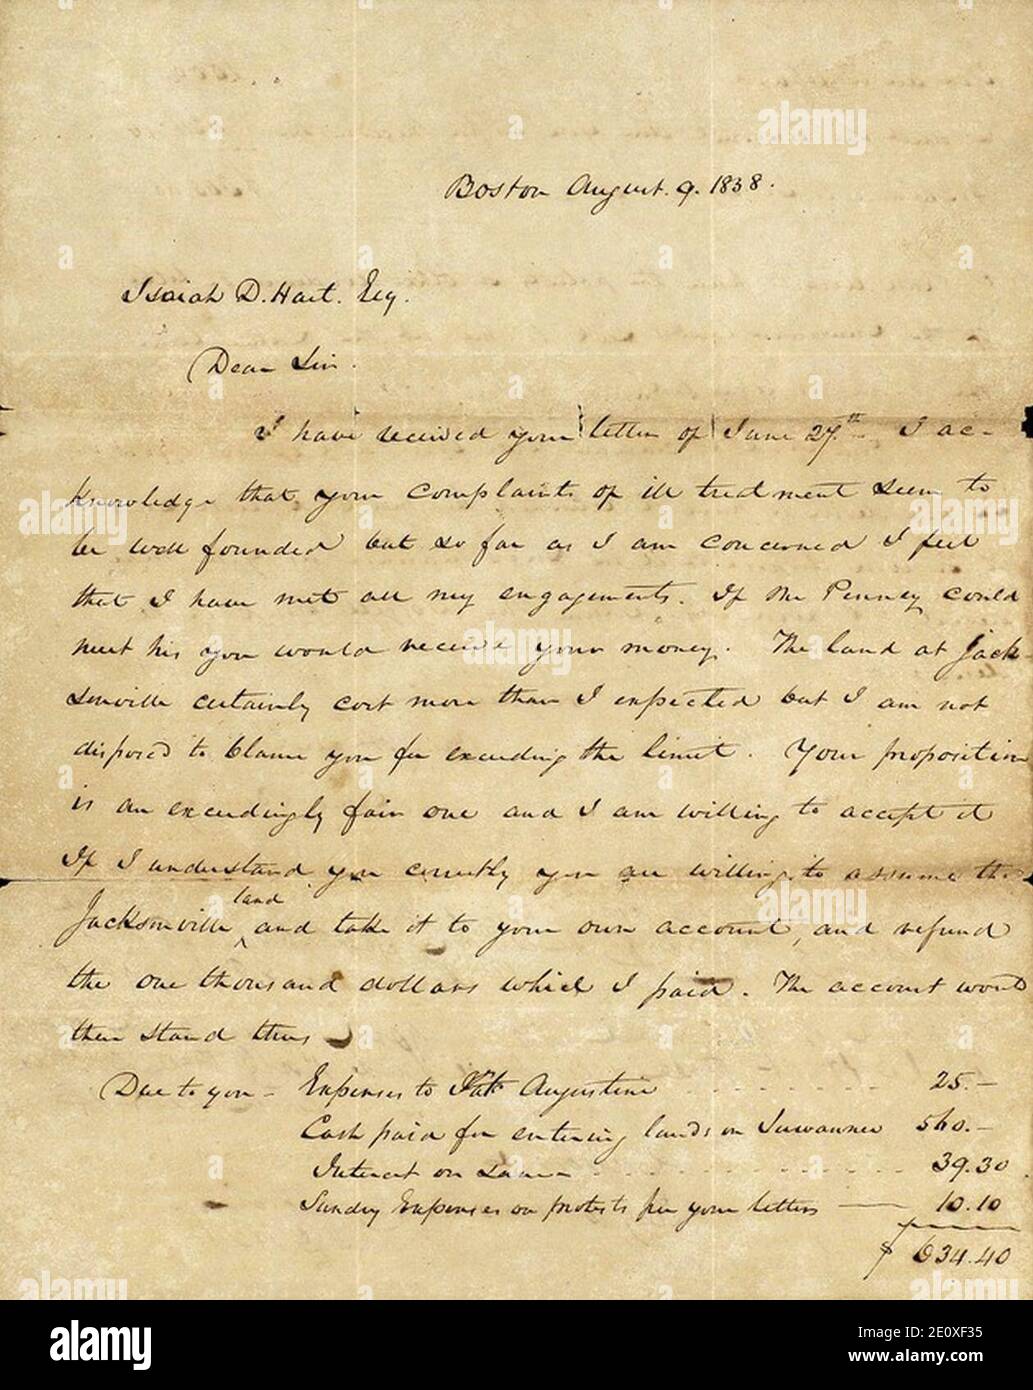 Boston August. 9. 1838.
Isaiah D. Hart. Esq.
Dear Sir.
I have received your letter of June 27th. I ac-
knowledge that your complaints of ill treatment seem to
be well founded but so far as I am concerned I feel
that I have met all my engagements. If Mr Penney could
meet his you would receive your money. The land at Jack-
sonville certainly cost more than I expected but I am not
disposed to blame you for exceeding the limit. Your proposition
is an exceedingly fair one and I am willing to accept it
If I understand you correctly you are willing to assume the
Jacksonville land and take it to your own account, and refund
the one thousand dollars which I paid. The account would
then stand thus
Due to you - Expenses to St Augustine 25.-
Cash paid for entering lands on Suwannee 560.-
Interest on same 39.30
Sundry Expenses on protests per your letters 10.10
$ 634.40
alamy
alamy
alamy
alamy
alamy
a
a
a
a
a
alamy
Image ID: 2E0XF35
www.alamy.com